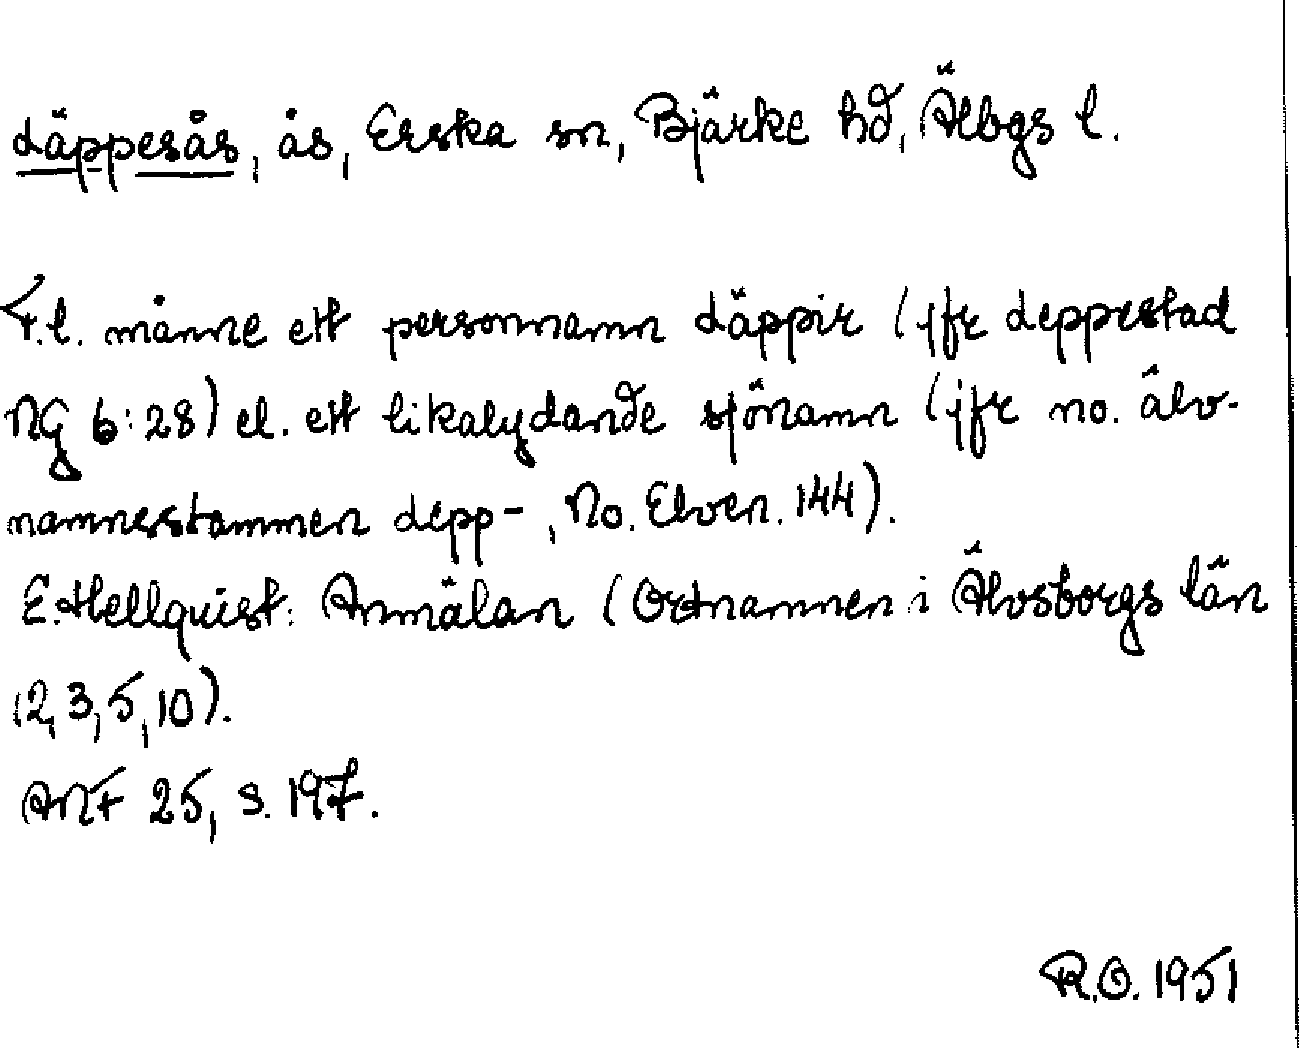 Läppesås, ås, Erska sn, Bjärke hd, Älbgs l.
F.l. månne ett personnamn Läppir (jfr Leppestad
NG 6:28) el. ett likalydande sjönamn (jfr no. älv-
namnesstammen Lepp-, No. Elven. 144).
E. Hellquist: Anmälan (Ortnamnen i Älvsborgs län
12, 3, 5, 10).
ANF 25, s. 197.
R.O. 1951